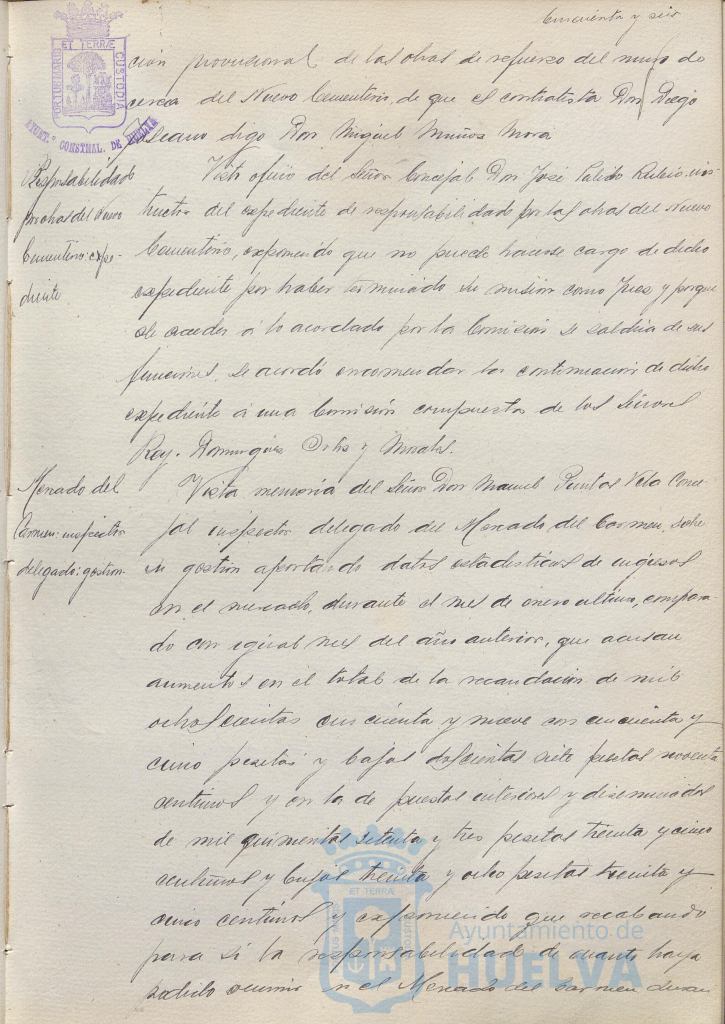 Cincuenta y seis
PORTUS MARIS ET TERRÆ CUSTODIA
AYUNT.º CONSTNAL. DE HUELVA
ción provisional de las obras de refuerzo del muro de
cerca del Nuevo Cementerio, de que es contratista Don Diego
digo Don Miguel Muñoz Mora
Responsabilidad
por obras del Nuevo
Cementerio: expe-
diente
Visto oficio del Señor Concejal Don José Pulido Rubio, ins-
tructor del expediente de responsabilidad por las obras del Nuevo
Cementerio, exponiendo que no puede hacerse cargo de dicho
expediente por haber terminado su misión como Juez y porque
de acceder a lo acordado por la Comisión se saldría de sus
funciones, se acordó encomendar la continuación de dicho
expediente a una Comisión compuesta de los Señores
Rey, Domínguez Ortiz y Morales.
Mercado del
Carmen: inspector
delegado: gestion
Vista memoria del Señor Don Manuel Puntas Vela Conce-
jal inspector delegado del Mercado del Carmen, sobre
su gestión aportando datos estadísticos de ingresos
en el mercado, durante el mes de enero último, compara-
do con igual mes del año anterior, que acusan
aumentos en el total de la recaudación de mil
ochocientas cincuenta y nueve con cincuenta y
cinco pesetas y bajas doscientas siete pesetas noventa
centimos y en la de puestos interiores y diseminados
de mil quinientas setenta y tres pesetas treinta y cinco
centimos y bajas treinta y ocho pesetas treinta y
cinco centimos y exponiendo que recabando
para sí la responsabilidad de cuanto haya
podido ocurrir en el Mercado del Carmen duran
Ayuntamiento de
HUELVA